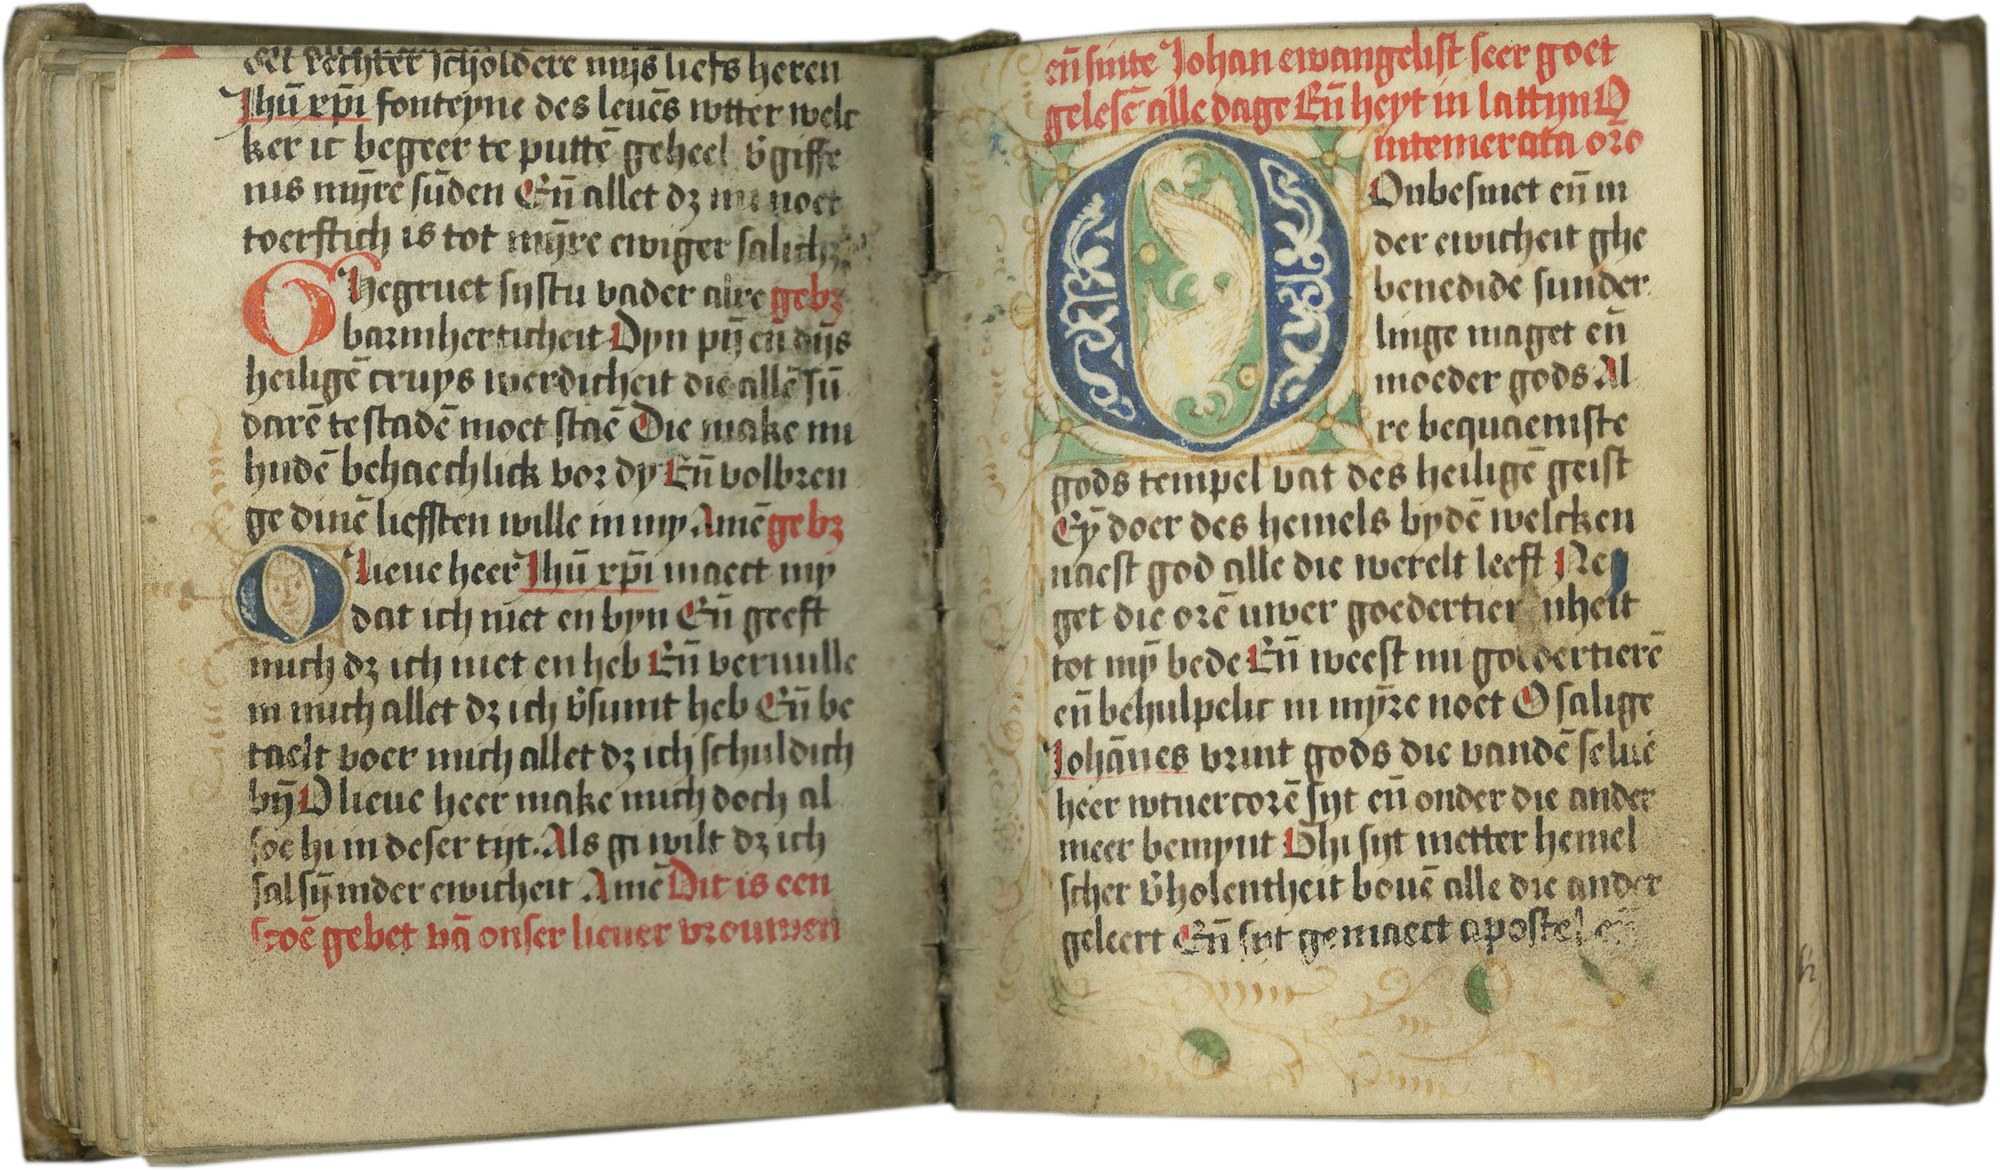 der rechter scholdere mijs liefs heren
Jhū xp̄i fonteyne des leuēs wtter welc
ker ic begeer te puttē geheel v̄giffe
nis mijre sūden Eñ allet dz mi noet
toerftich is tot mȳre ewiger salich
Ghegruet sijstu vader alre gebz
barmherticheit Dyn pij eñ dijs
heiligē cruys werdicheit die allē sū
darē te stadē moet staē Die make mi
hudē behaechlick vor dy Eñ volbren
ge dinē liefften wille in my Amē gebz
O lieue heer Jhū xp̄i maect my
dat ich niet en byn Eñ geeft
mich dz ich niet en heb Eñ vernulle
in mich allet dz ich v̄sumt heb Eñ be
taelt voer mich allet dz ich schuldich
bȳ O lieue heer make mich doch al
soe hi in deser tijt Als gi wilt dz ich
sal sȳ inder ewicheit Amē Dit is een
scoē gebet vā onser lieuer vrouwen
eñ sinte Johan ewangelist seer goet
gelesē alle dage Eñ heyt in lattijn O
intemerata oro
Onbesmet eñ in
der ewicheit ghe
benedide sunder
linge maget eñ
moeder gods Al
re bequaemste
gods tempel vat des heiligē geist
Eȳ doer des hemels bydē welcken
naest god alle die werelt leeft Ney
get die orē uwer goedertierenheit
tot mȳ bede Eñ weest mi goedertierē
eñ behulpelic in mȳre noet O salige
Johānes vrint gods die vandē seluē
heer wtuercorē sijt eñ onder die ander
meer bemynt Ghi sijt metter hemel
scher v̄holentheit bouē alle die ander
geleert Eñ sijt gemaect apostel eñ